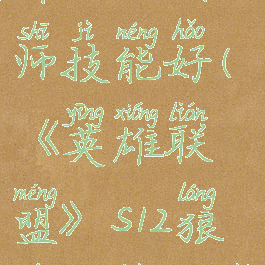 shī jì néng hǎo
师技能好(
yīng xióng lián
《英雄联
méng láng
盟》 S12狼